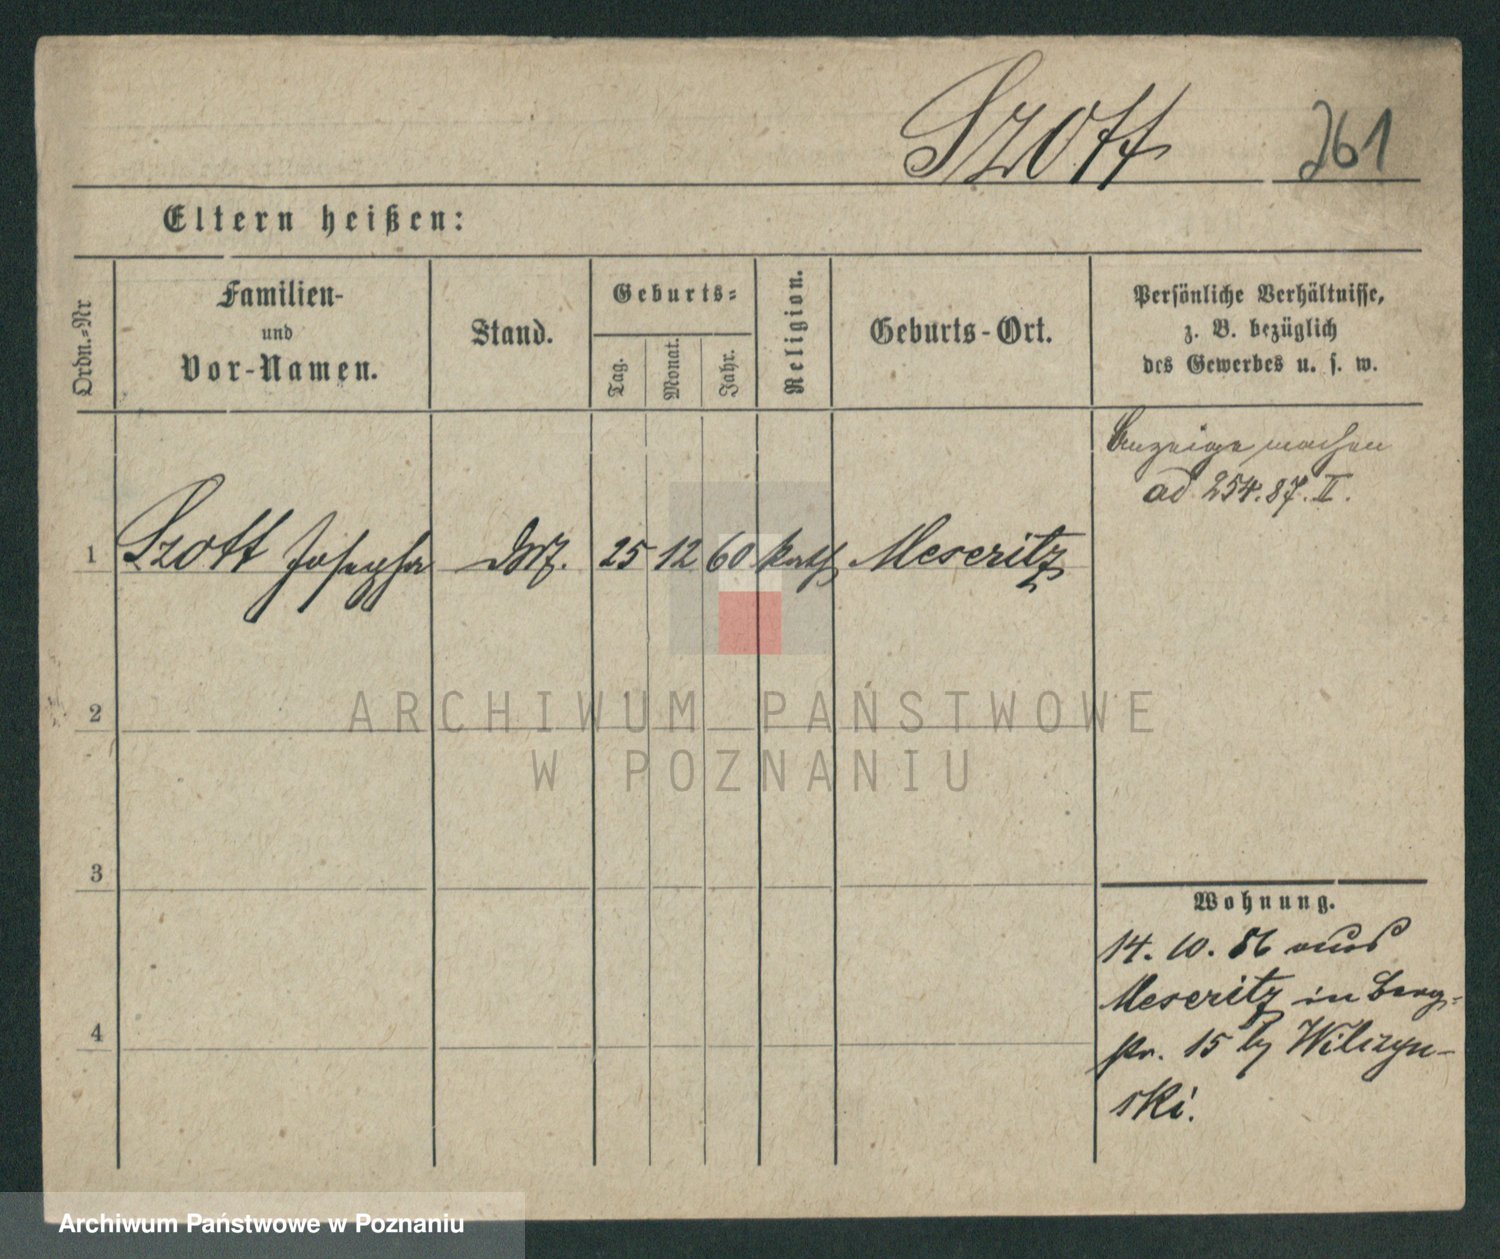 Szott 261
Eltern heißen:
Ordn.-Nr
Familien-
und
Vor-Namen.
Stand.
Geburts-
Tag.
Monat.
Jahr.
Religion.
Geburts-Ort.
Persönliche Verhältnisse,
z. B. bezüglich
des Gewerbes u. s. w.
Anzeige machen
ad 254.87.II.
1 Szott Josepha 25 12 60 kath Meseritz
2
3
4
Wohnung.
14. 10. 86 aus
Meseritz in Berg-
str. 15 by Wilczyn-
ski.
ARCHIWUM PAŃSTWOWE
W POZNANIU
Archiwum Państwowe w Poznaniu